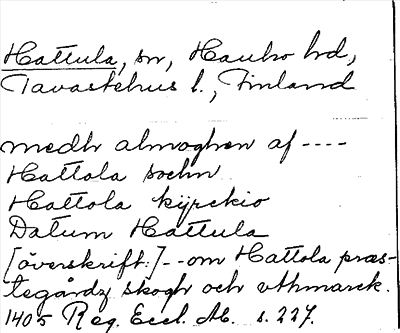 Hattula, sn, Hauho hd,
Tavastehus l., Finland
medh almoghen af ----
Hattola sochn
Hattola kijrckio
Datum Hattula
[överskrift:]--om Hattola præs-
tegårdz skogh och vthmarck.
1405 Reg. Eccl. Ab. s. 227.